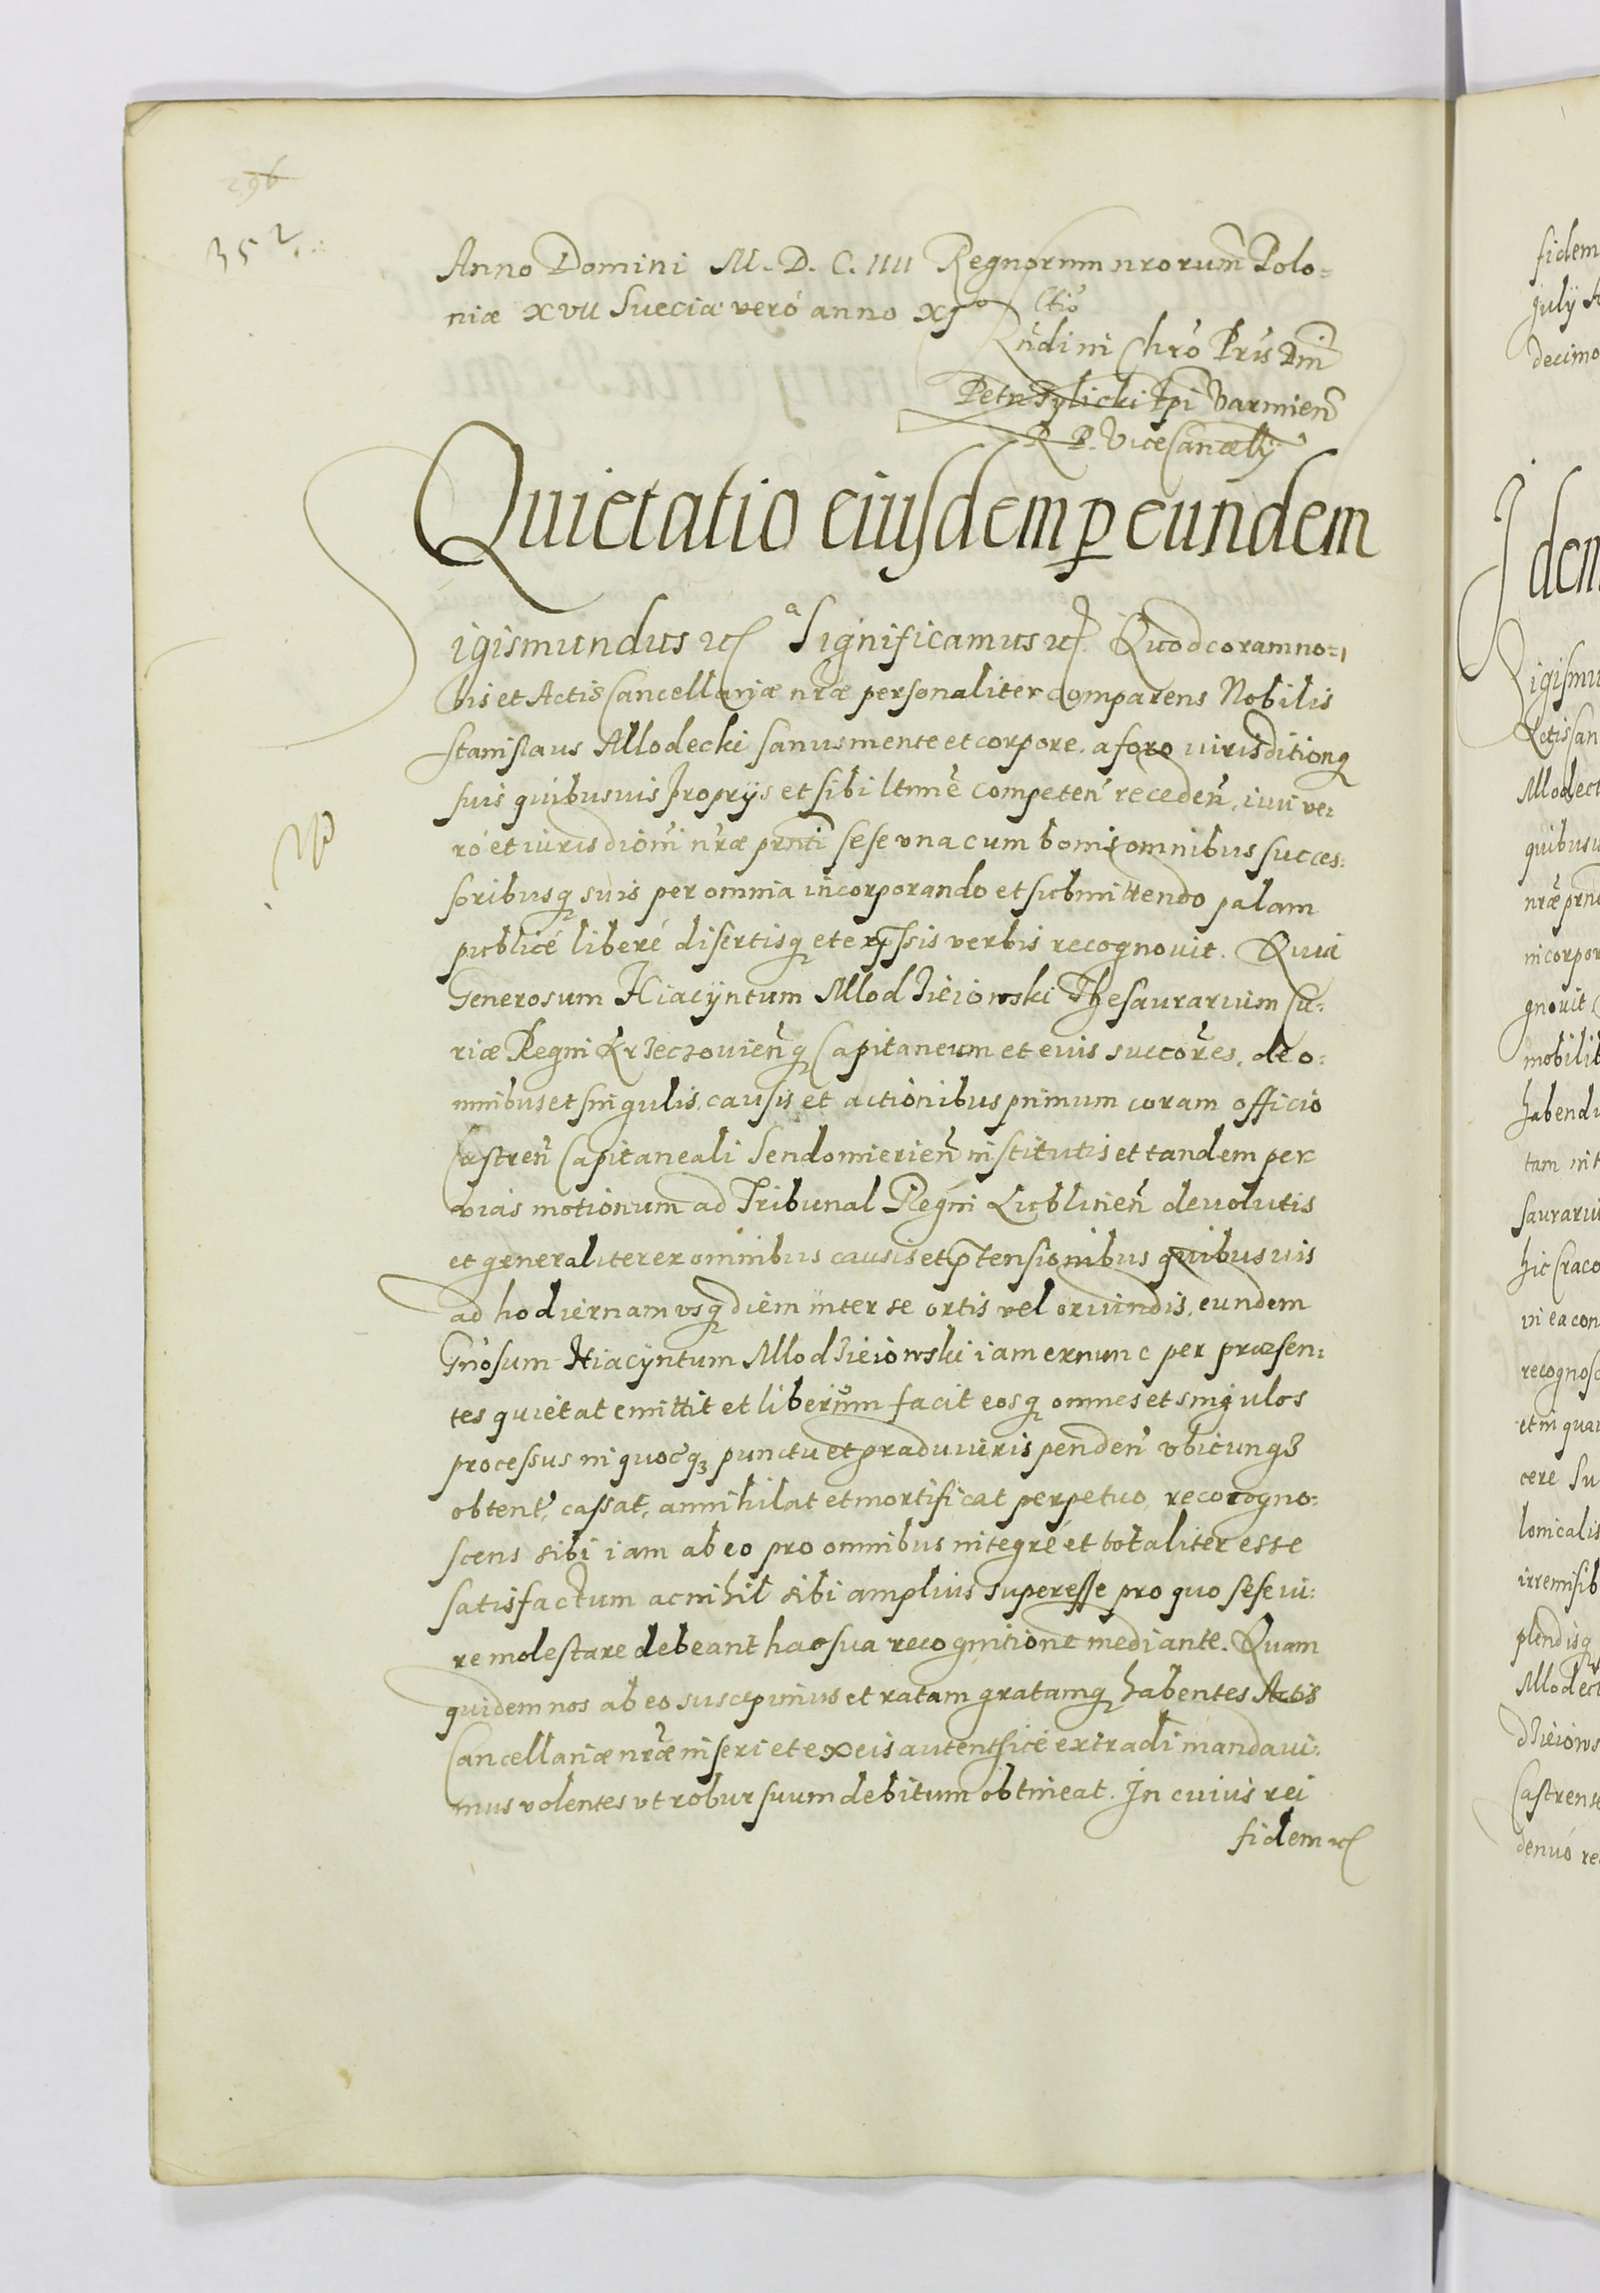 296
352
Anno Domini M. D. C. IIII Regnorum nrorum Polo=
niæ XVII Sueciæ veró anno XI°
Rndi in Chro Pris Dni
Petri Tylicki Epi Varmien
R. P. ViceCancellÿ
Quietatio eiusdem p eundem
Sigismundus etc Significamus etc Quod coram no=
bis et Actis Cancellariæ nræ personaliter comparens Nobilis
Stanislaus Mlodecki sanus mente et corpore, a foro iurisditionq
suis quibusuis proprÿs et sibi ltime competen receden, iuri ve=
ró et iurisdioni nræ prnti sese vna cum bonis omnibus succes=
soribusq suis per omnia incorporando et submittendo palam
publicé liberé disertisq et expssis verbis recognouit. Quia
Generosum Hiacÿntum Mlodzieiowski Thesaurarium Cu=
riæ Regni Krzeczouienq Capitaneum et eius succores, de o=
mnibus et singulis causis et actionibus primum coram officio
Castren Capitaneali Sendomierien institutis et tandem per
vias motionum ad Tribunal Regni Lublinen deuolutis
et generaliter ex omnibus causis et ptensionibus quibusuis
ad hodiernam vsq diem inter se ortis vel oriundis, eundem
Gnosum Hiacÿntum Mlodzieiowski iam exnunc per præsen=
tes quietat emittit et liberum facit eosq omnes et singulos
processus in quocq punctu et gradu iuris penden vbicunq
obtent, cassat, annihilat et mortificat perpetuo, recocogno=
scens sibi iam ab eo pro omnibus integré et totaliter esse
satisfactum ac nihil sibi amplius superesse pro quo sese iu=
re molestare debeant hac sua recognitione mediante. Quam
quidem nos ab eo suscepimus et ratam gratamq habentes Actis
Cancellariæ nræ inseri et ex eis autenthicé extradi mandaui=
mus volentes vt robur suum debitum obtineat. In cuius rei
fidem etc